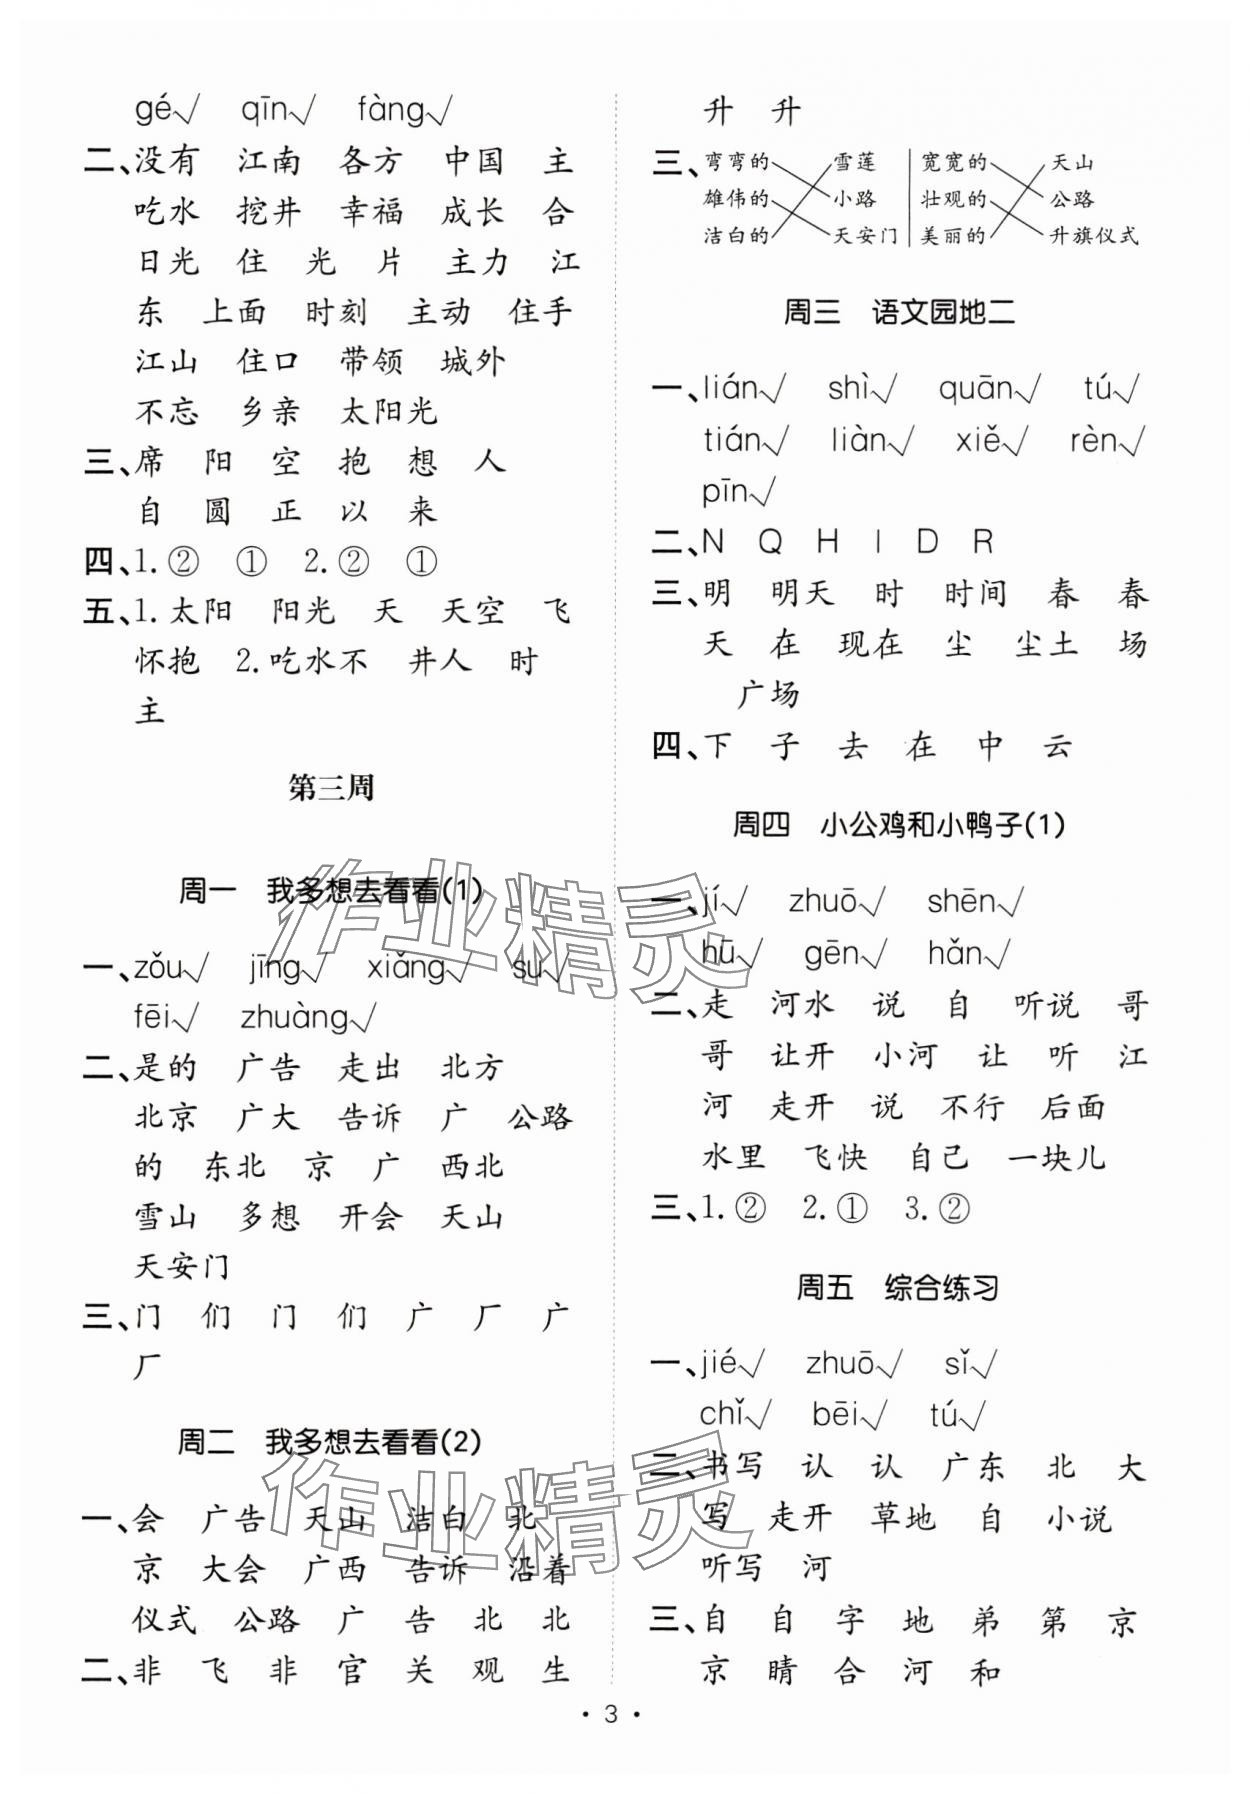 gé√ qīn√ fàng√
二、没有 江南 各方 中国 主
吃水 挖井 幸福 成长 合
日光 住 光 片 主力 江
东 上面 时刻 主动 住手
江山 住口 带领 城外
不忘 乡亲 太阳光
三、席 阳 空 抱 想 人
自 圆 正 以 来
四、1.② ① 2.② ①
五、1.太阳 阳光 天 天空 飞
怀抱 2.吃水不 井人 时
主
第三周
周一 我多想去看看(1)
一、zǒu√ jīng√ xiǎng√ su√
fēi√ zhuàng√
二、是的 广告 走出 北方
北京 广大 告诉 广 公路
的 东北 京 广 西北
雪山 多想 开会 天山
天安门
三、门 们 门 们 广 厂 广
厂
周二 我多想去看看(2)
一、会 广告 天山 洁白 北
京 大会 广西 告诉 沿着
仪式 公路 广 告 北 北
二、非 飞 非 官 关 观 生
升 升
三、弯弯的 雪莲 宽宽的 天山
雄伟的 小路 壮观的 公路
洁白的 天安门 美丽的 升旗仪式
周三 语文园地二
一、lián√ shì√ quān√ tú√
tián√ liàn√ xiě√ rèn√
pīn√
二、N Q H I D R
三、明 明天 时 时间 春 春
天 在 现在 尘 尘土 场
广场
四、下 子 去 在 中 云
周四 小公鸡和小鸭子(1)
一、jí√ zhuō√ shēn√
hū√ gēn√ hǎn√
二、走 河水 说 自 听说 哥
哥 让开 小河 让 听 江
河 走开 说 不行 后面
水里 飞快 自己 一块儿
三、1.② 2.① 3.②
周五 综合练习
一、jié√ zhuō√ sǐ√
chǐ√ bēi√ tú√
二、书写 认 认 广东 北 大
写 走开 草地 自 小说
听写 河
三、自 自 字 地 弟 第 京
京 睛 合 河 和
• 3 •
作业精灵
作业精灵